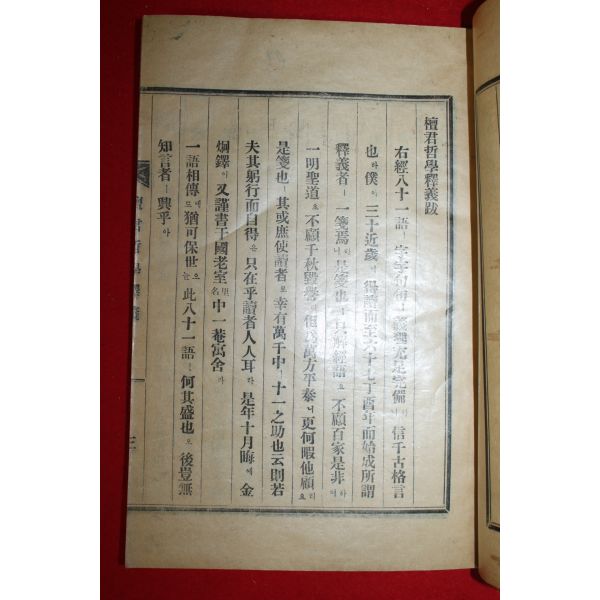 檀君哲學釋義跋
右經八十一語ㅣ字字句句ㅣ義理尤是完備니信千古格言
也라僕이三十近歲에得讀而至六十七丁酉年而始成所謂
釋義者ㅣ一箋焉니是箋也ㅣ只解經語오不顧百家是非하며
一明聖道오不顧千秋毁譽며但 萬方平泰니更何暇他顧리요
是箋也ㅣ其或庶使讀者로幸有萬千中ㅣ十一之助也云則若
夫其躬行而自得은只在乎讀者人人耳라是年十月晦에金
炯鐸이又謹書于國老室堂名中一菴寓舍라
一語相傳에도猶可保世으늘此八十一語ㅣ何其盛也오後豈無
知言者ㅣ興乎아
檀君哲學釋義
三